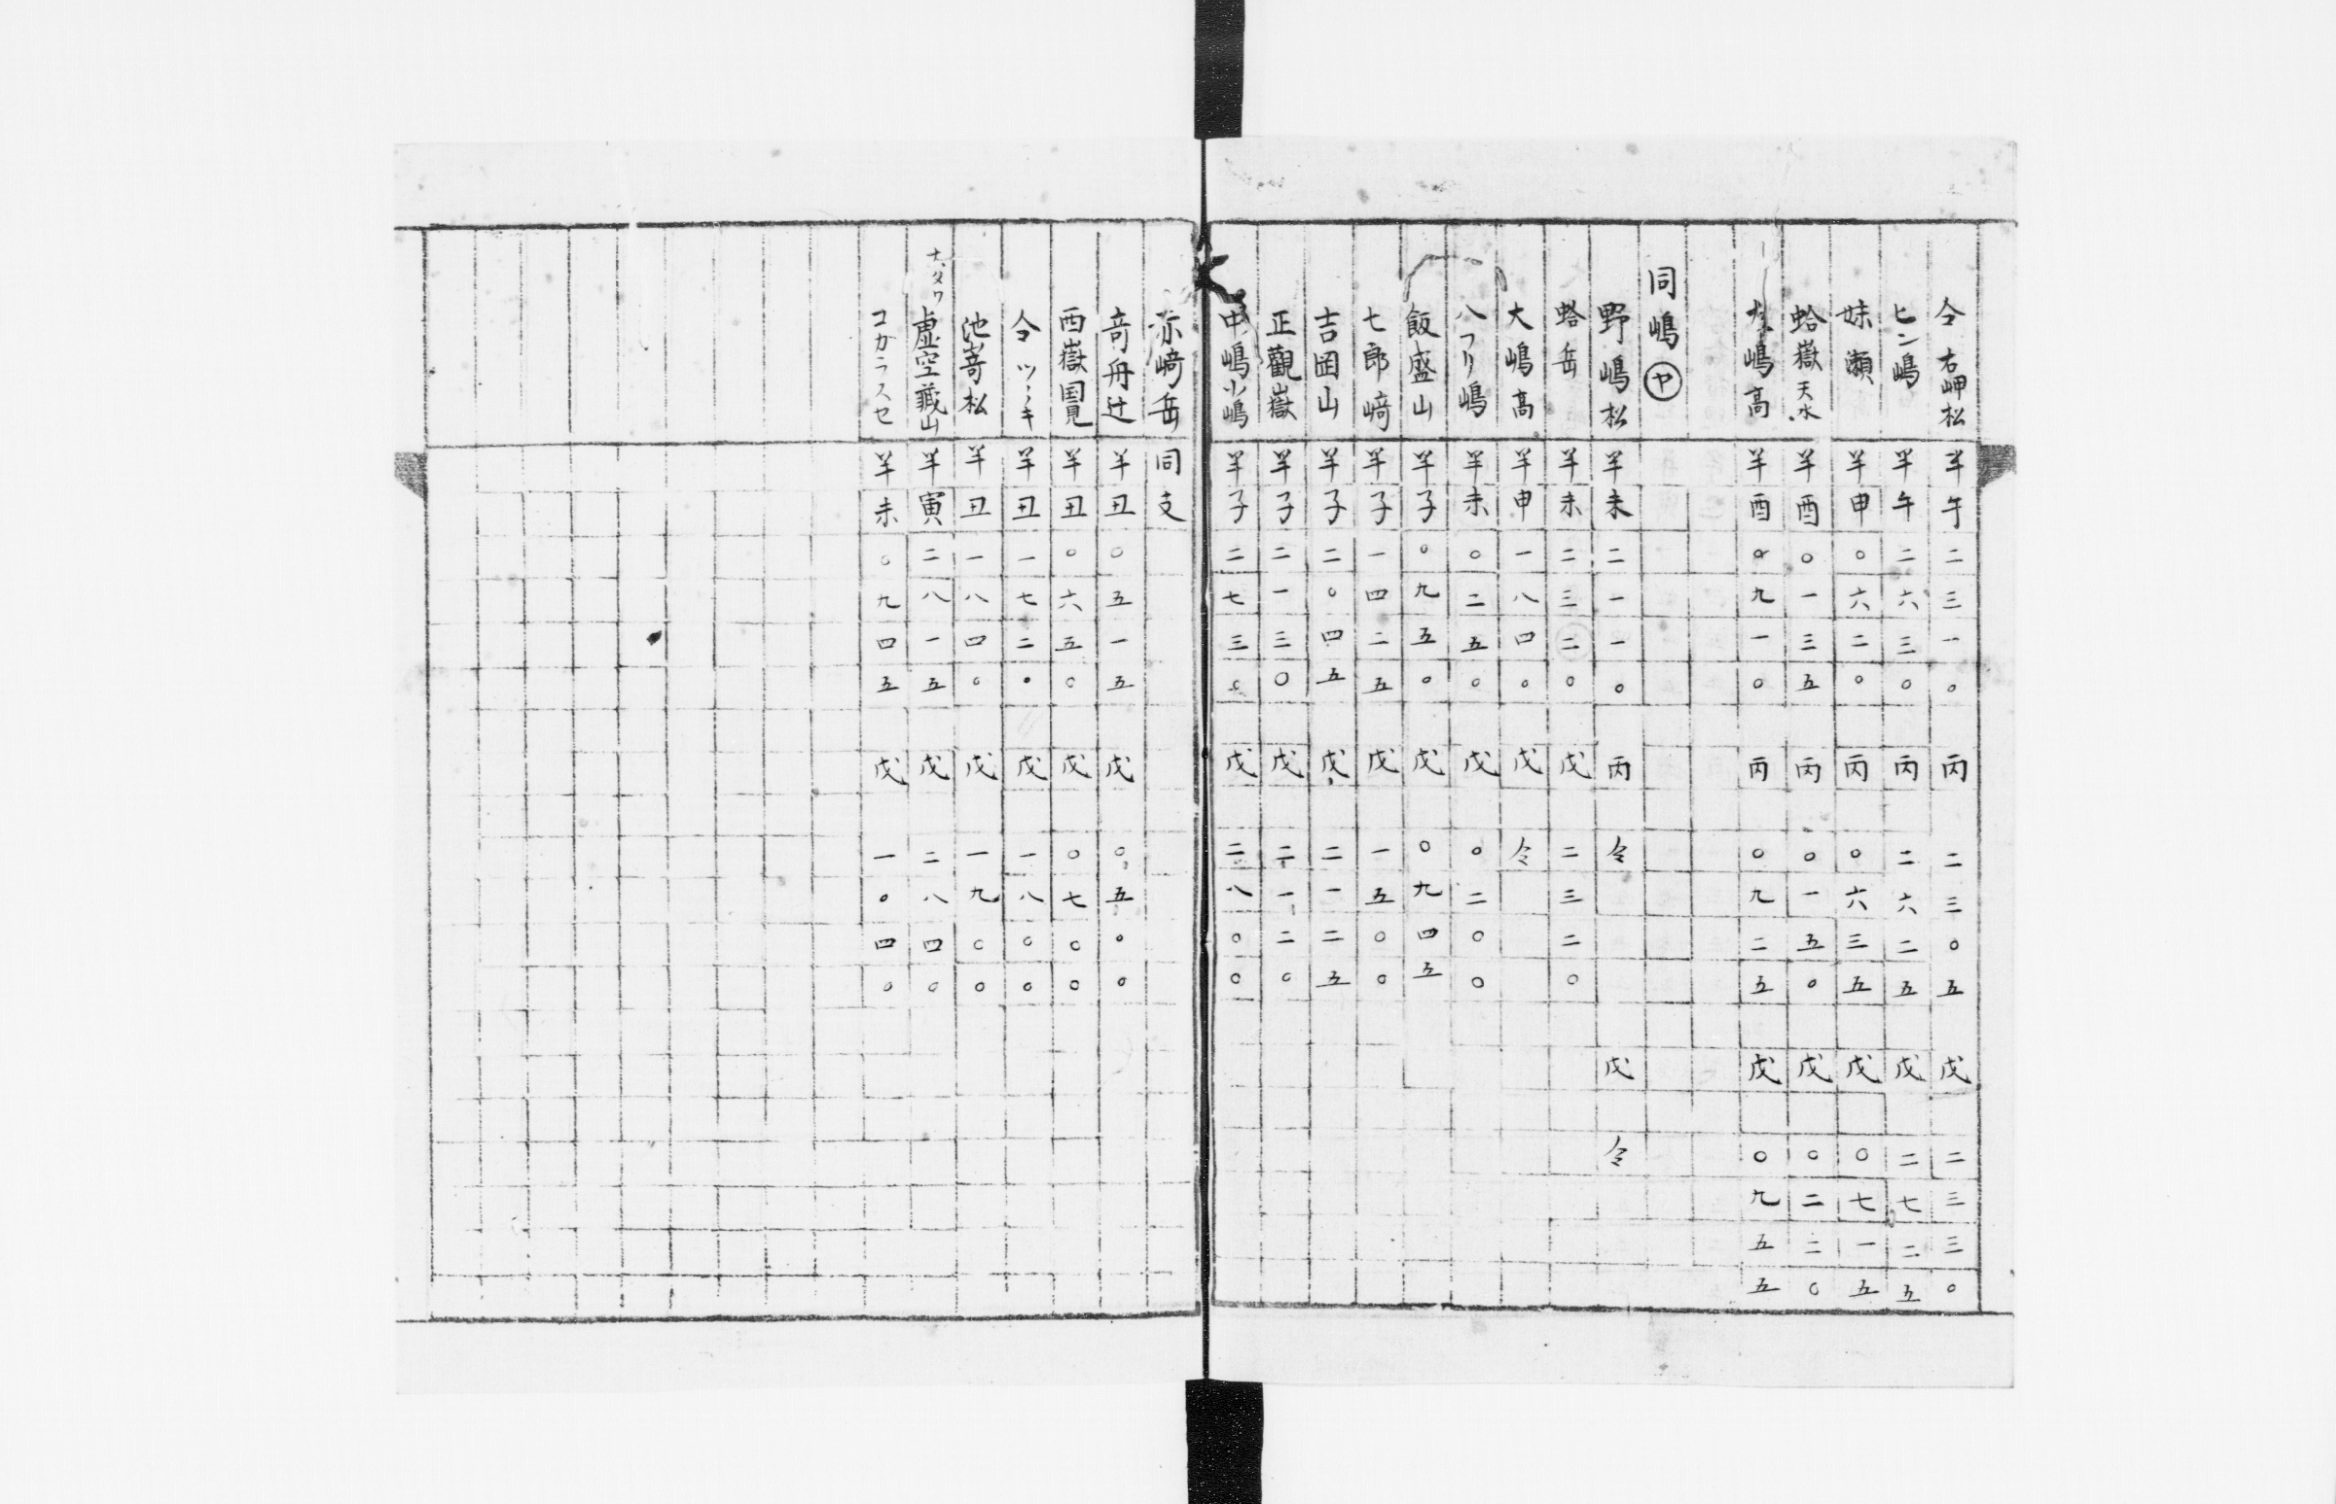 仝 右岬松 半午二三一〇 丙 二三〇五 戊 二三三〇
ヒン嶋 半午二六三〇 丙 二六二五 戊 二七二五
妹瀬 半申〇六二〇 丙 〇六三五 戊 〇七一五
蛤嶽天水 半酉〇一三五 丙 〇一五〇 戊 〇二二〇
大嶋高 半酉〇九一〇 丙 〇九二五 戊 〇九五五
同嶋ヤ
野嶋松 半未二一一〇 丙 仝 戊 仝
蛤岳 半未二三二〇 戊 二三二〇
大嶋高 半申一八四〇 戊 仝
八フリ嶋 半未〇二五〇 戊 〇二〇〇
飯盛山 半子〇九五〇 戊 〇九四五
七郎﨑 半子一四二五 戊 一五〇〇
吉岡山 半子二〇四五 戊 二一二五
正觀嶽 半子二一三〇 戊 二一二〇
中嶋小嶋 半子二七三〇 戊 二八〇〇
赤﨑岳 同支
竒舟辻 半丑〇五一五 戊 〇五〇〇
西嶽国見 半丑〇六五〇 戊 〇七〇〇
仝 ツヽキ 半丑一七二〇 戊 一八〇〇
池嵜松 半丑一八四〇 戊 一九〇〇
虚空藏山 半寅二八一五 戊 二八四〇
コカラスセ 半未〇九四五 戊 一〇四〇